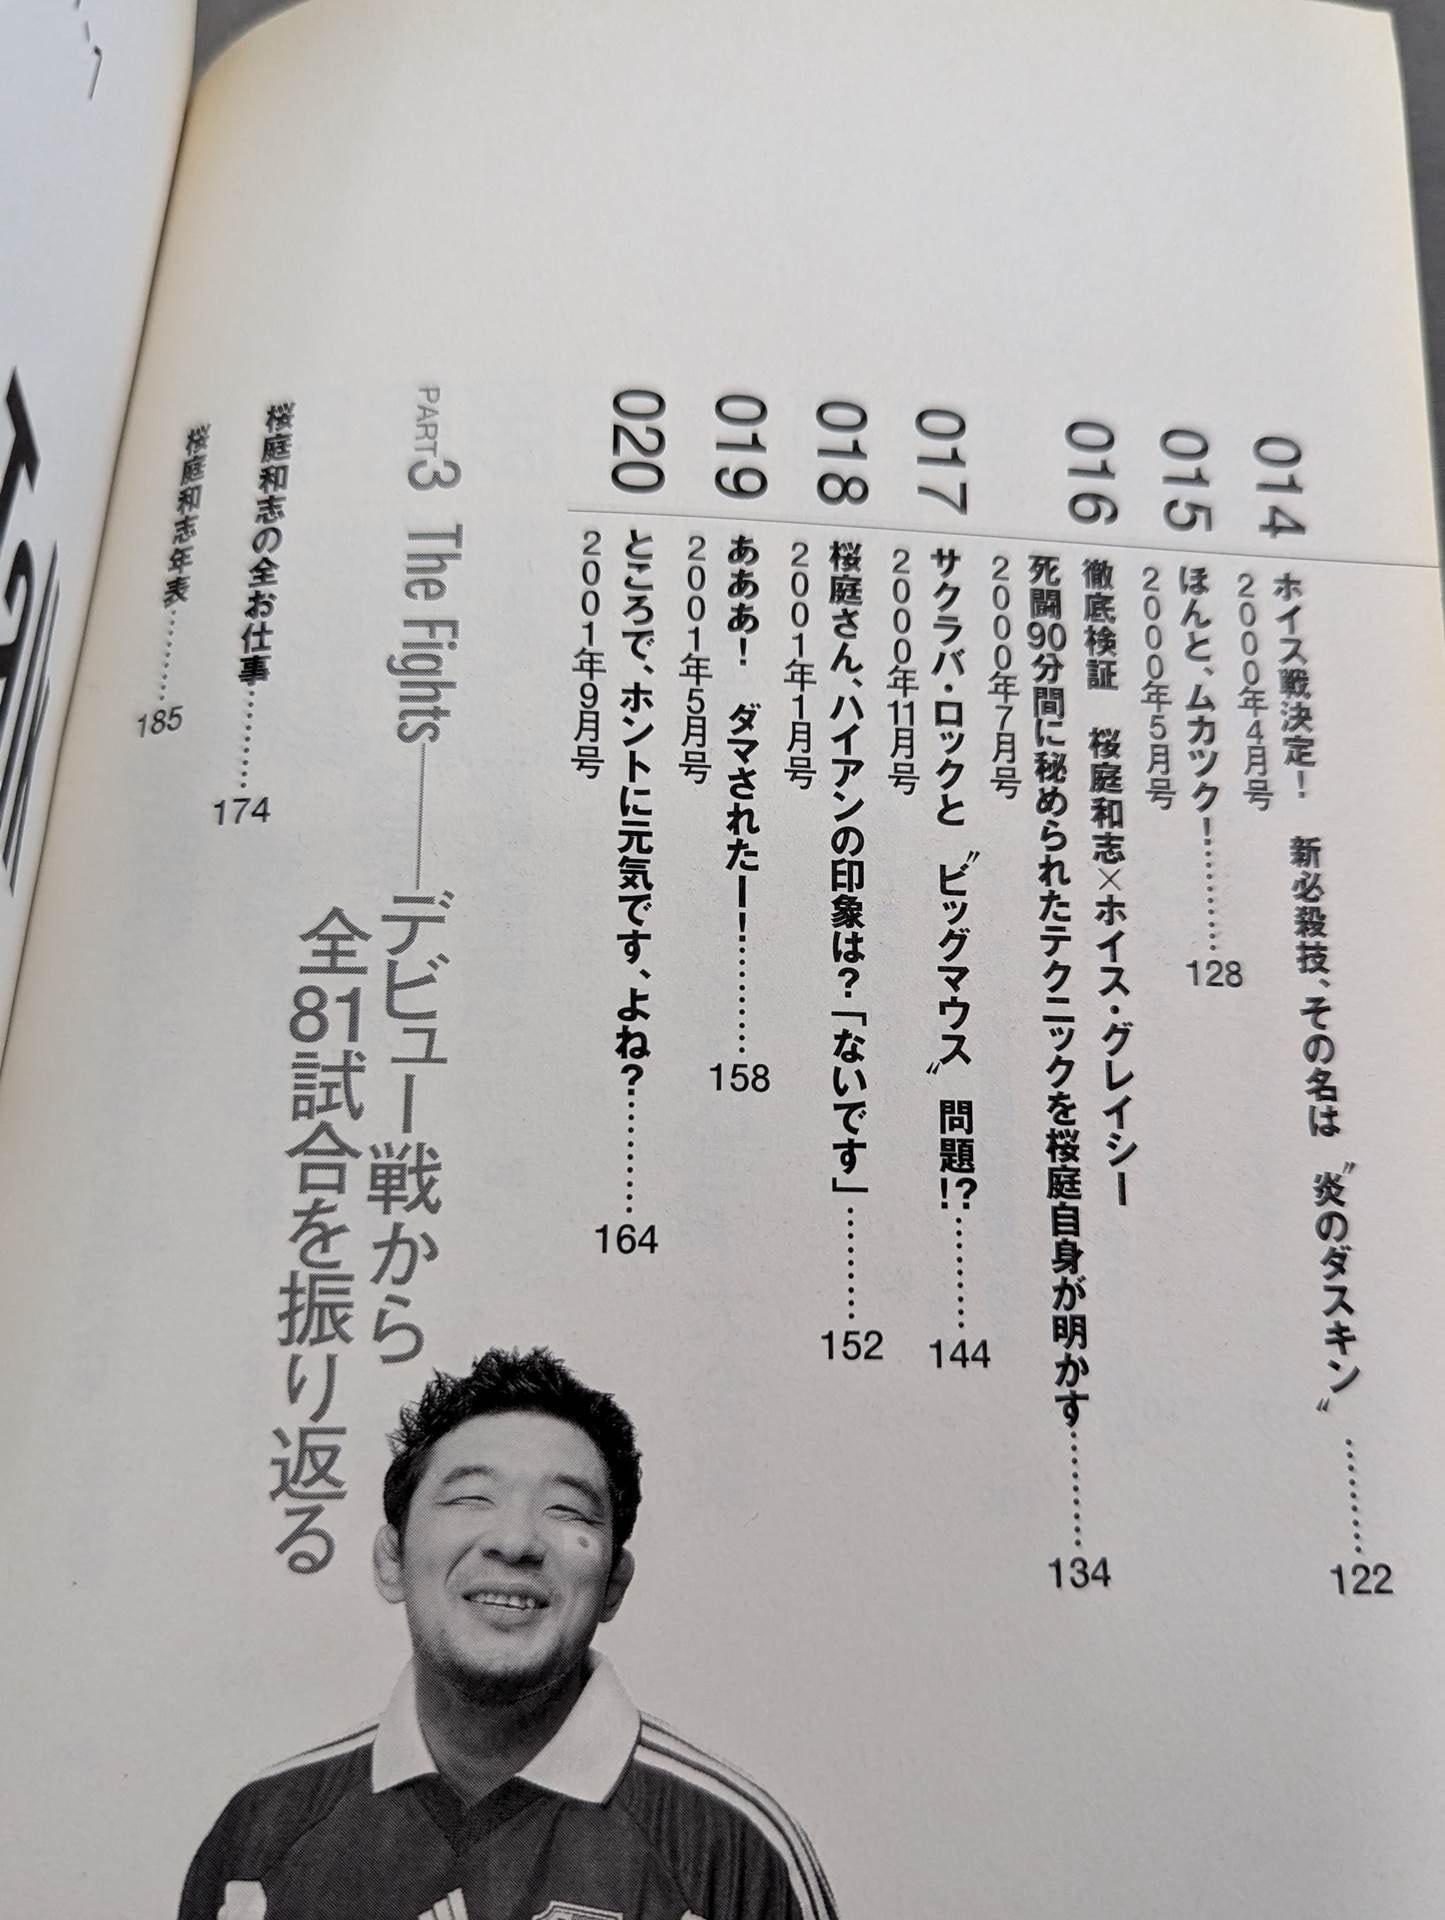 014
ホイス戦決定！　新必殺技、その名は〝炎のダスキン〟………122
2000年4月号
015
ほんと、ムカツク！………128
2000年5月号
016
徹底検証　桜庭和志×ホイス・グレイシー
死闘90分間に秘められたテクニックを桜庭自身が明かす………134
2000年7月号
017
サクラバ・ロックと〝ビッグマウス〟問題!?………144
2000年11月号
018
桜庭さん、ハイアンの印象は？「ないです」………152
2001年1月号
019
あああ！　ダマされたー！………158
2001年5月号
020
ところで、ホントに元気です、よね？………164
2001年9月号
PART3 The Fights――デビュー戦から
全81試合を振り返る
桜庭和志の全お仕事………174
桜庭和志年表………185